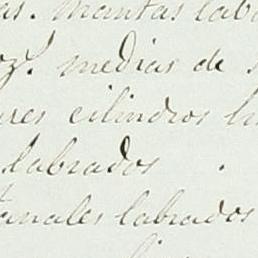 as. mantas lab
oz.! medias de
res cilindros
labrados .
tanales labrados